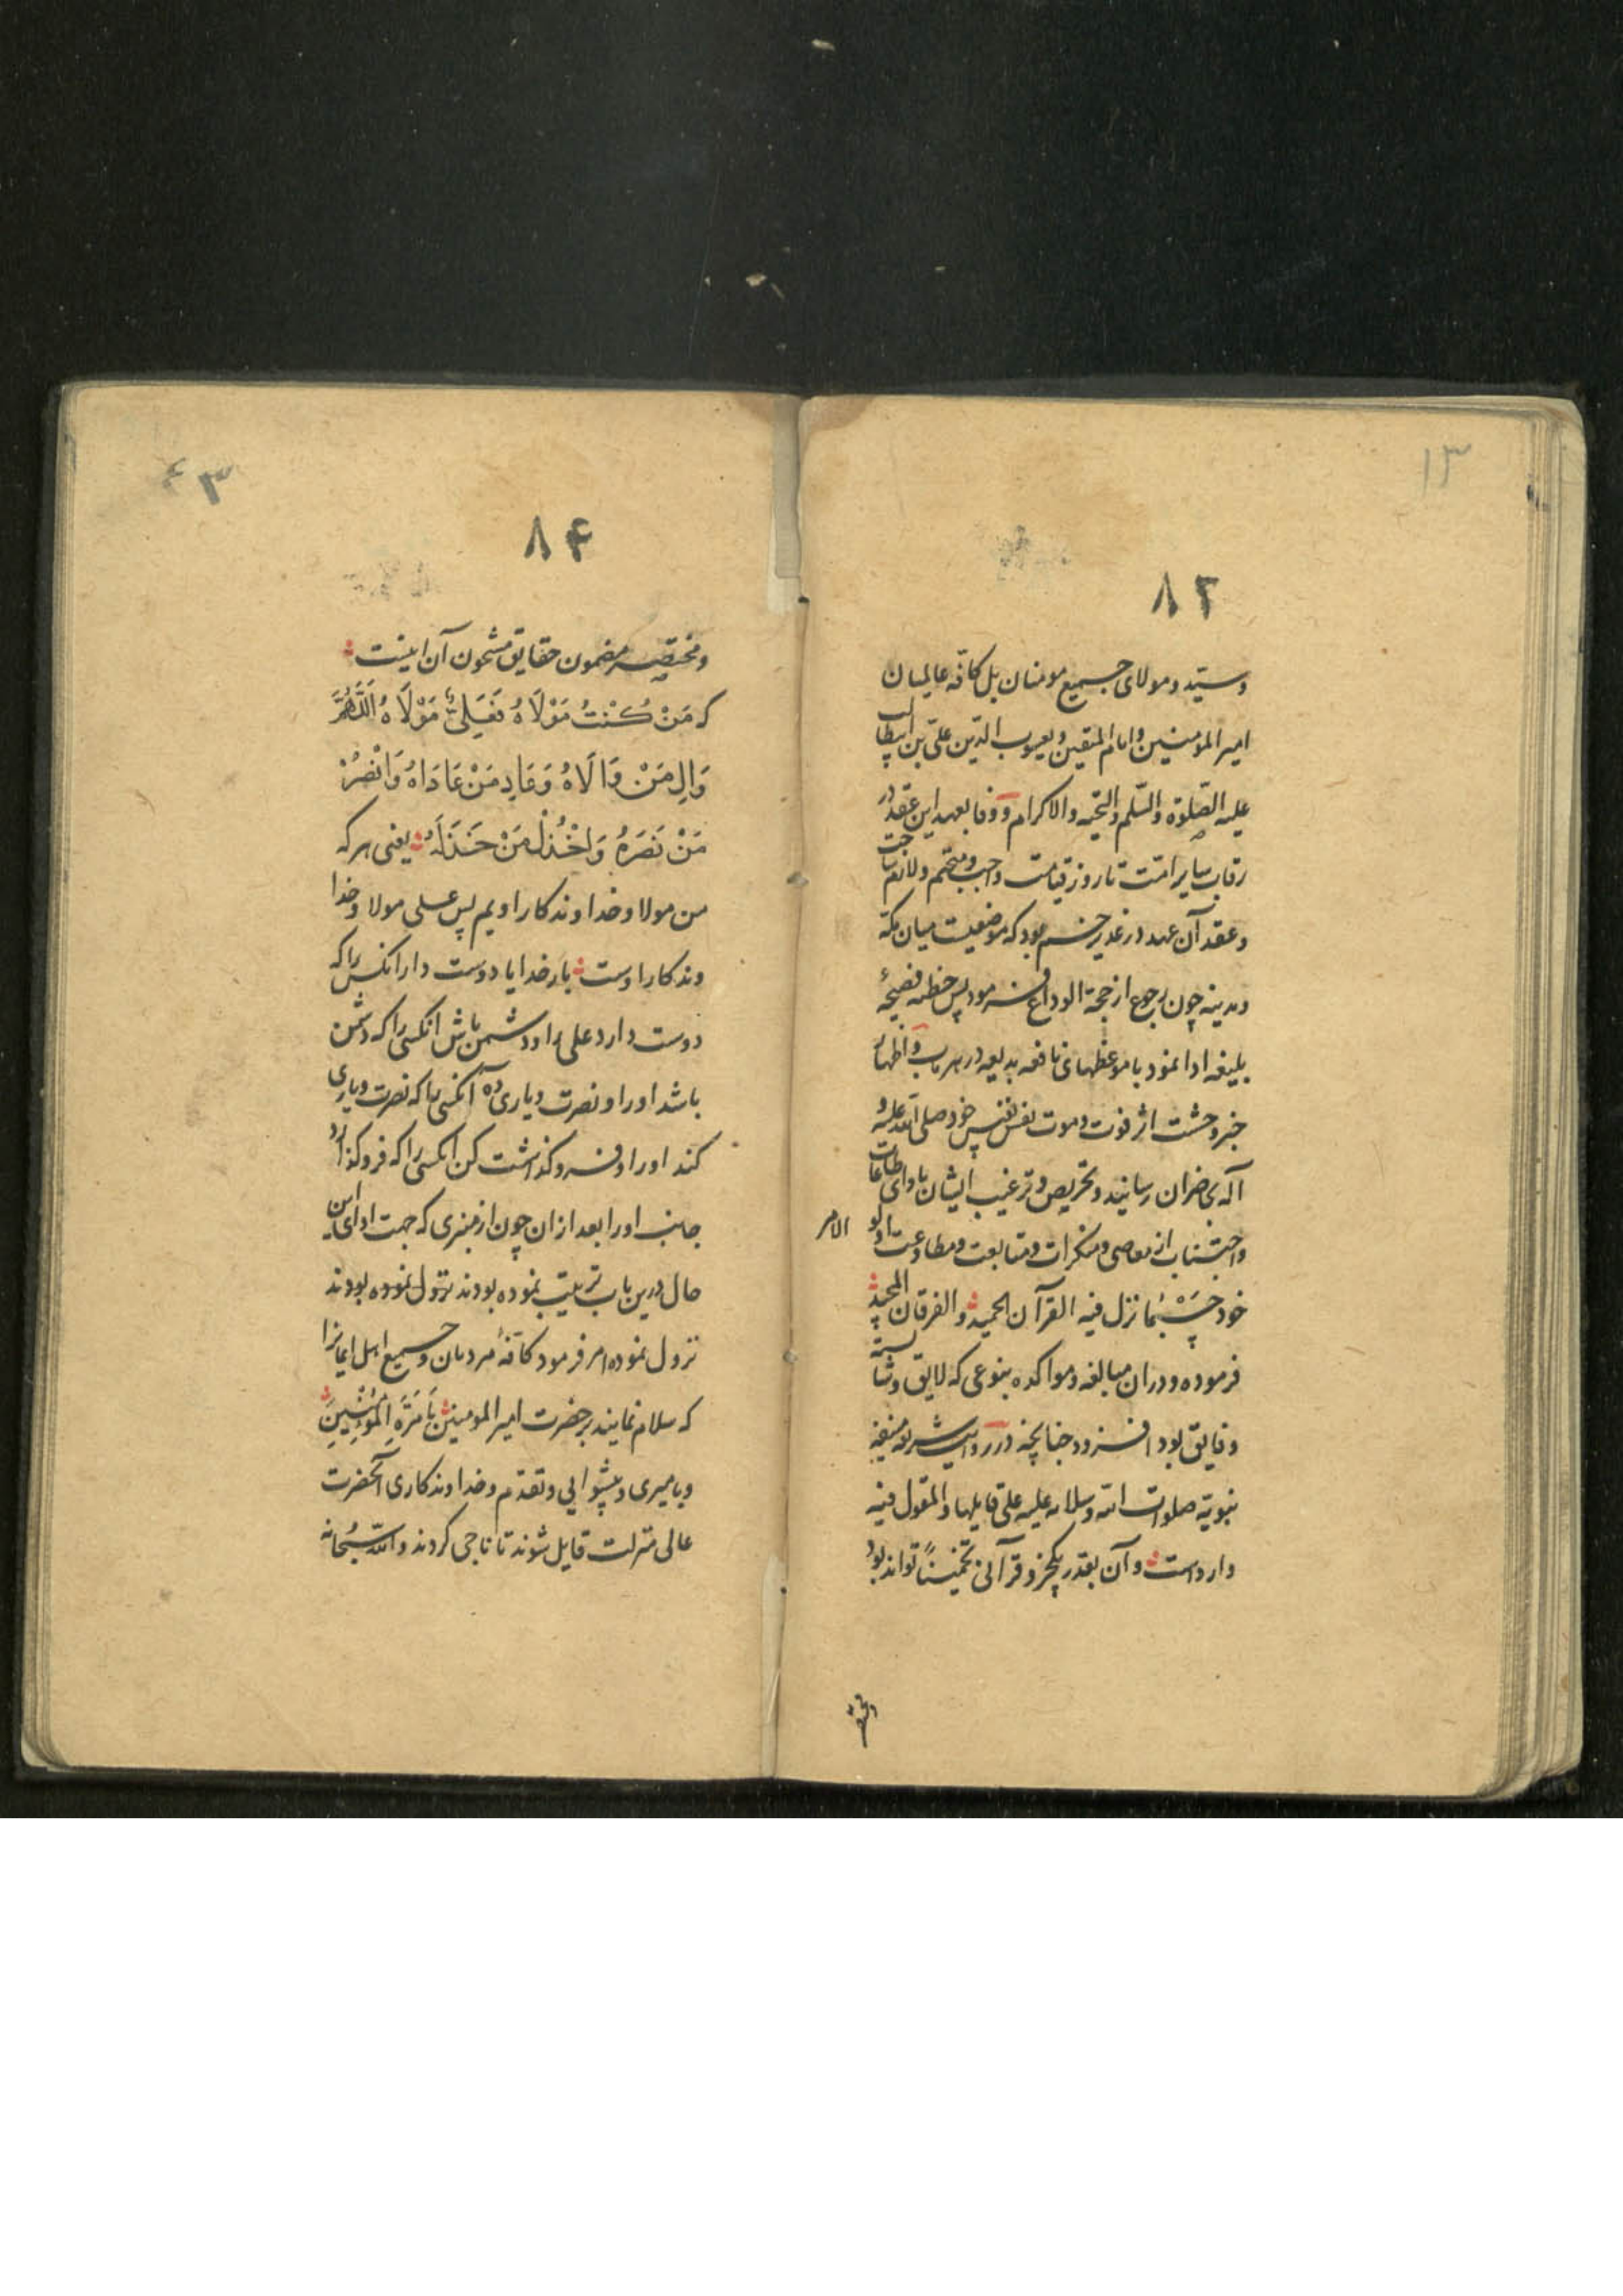 ۱۳
۸۳
وسیّد و مولای جمیع مومنان بل کافّه عالمیان
امیر المؤمنین و امام المتقین و یعسوب الدین علیّ بن ابیطالب
علیه الصّلوة والسّلم والتحیه والاکرام و وفا بعهد این عقد در
رقاب سایر امّت تا روز قیامت واجب و متحتم و لازم
وعقد آن عهد در غدیر خم بود که موضعیست میان مکّه
ومدینه چون رجوع از حجة الوداع فرمود پس خطبه فصیحهٔ
بلیغه ادا نمود با موعظهای نافعه بدیعه در هر باب و اظهار
خبر وحشت اثر فوت و موت نفس نفیس خود صلی الله علیه و
آله بحاضران رسانید و تحریص و ترغیب ایشان باداى طاعات
واجتناب از معاصی و منکرات و متابعت و مطاوعت اولو الامر
خود حَسْبَمٰا نزل فیه القرآن الحمید والفرقان المجید
فرموده و دران مبالغه و مواکده بنوعی که لایق وشایسته
وفایق بود افزود چنانچه در روایت شریفه منیفه
نبویّة صلوات الله وسلامه علیه علی قایلها والمقول فیه
وارداست وآن بقدر یکجزو قرآنی تخمیناً تواند بود
ومختصر
۴۳
۸۴
ومختصر مضمون حقایق مشحون آن اینست
که مَنْ کُنْتُ مَوْلَاهُ فَعَلِیٌّ مَوْلَاهُ اَللّٰهُمَّ
وَالِ مَنْ وَالَاهُ وَعَادِ مَنْ عَادَاهُ وَانْصُرْ
مَنْ نَصَرَهُ وَاخْذُلْ مَنْ خَذَلَهُ یعنی هر که
من مولا و خداوندکار اویم پس علی مولا و خدا
وندکار اوست بار خدایا دوست دار انکس را که
دوست دارد علی را و دشمن باش انکسی را که دشمن
باشد اورا و نصرت و یاری ده آنکسی را که نصرت و یاری
کند اورا و فروگذاشت کن انکسی را که فروگذارد
جانب اورا بعد ازان چون از منبری که جهت ادای این
حال درین باب ترتیب نموده بودند نزول نموده بودند
نزول نموده امر فرمود کافّهٔ مردمان و جمیع اهل ایمانرا
که سلام نمایند بر حضرت امیر المومنین بِاَمْرَةِ الْمُؤْمِنِینَ
وبامیری و پیشوایی و تقدّم و خداوندکاری آنحضرت
عالی منزلت قایل شوند تا ناجی کردند والله سُبْحانه